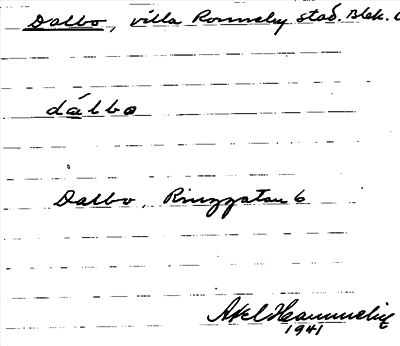 Dalbo, villa Ronneby stad. Blek. l
dálbo
Dalbo, Ringgatan 6
Axel Hammelig
1941